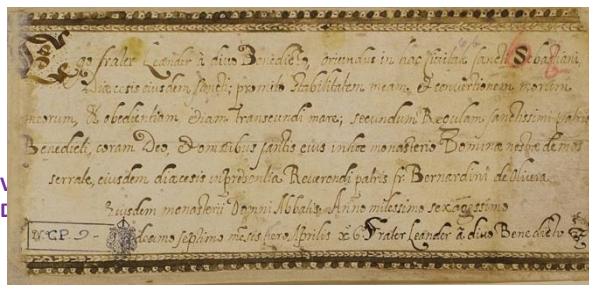 Ego frater Leander à divo Benedicto, oriundus in hac civitate sancti Sebastiani,
Diæcesis eiusdem sancti; promito stabilitatem meam, & convertionem morum
meorum, & obedientiam etiam transeundi mare; secundum Regulam sanctissimi patris
Benedicti, coram Deo, & omnibus santis eius in hoc monasterio Dominæ nostræ de mon
serrate, eiusdem diæcesis in presentia Reverendi patris fr. Bernardini de Olivera
Eiusdem monasterii Domni Abbatis, Anno milessimo sexagessimo
decimo septimo mesis vero Aprilis Frater Leander à divo Benedicto
CP 9-